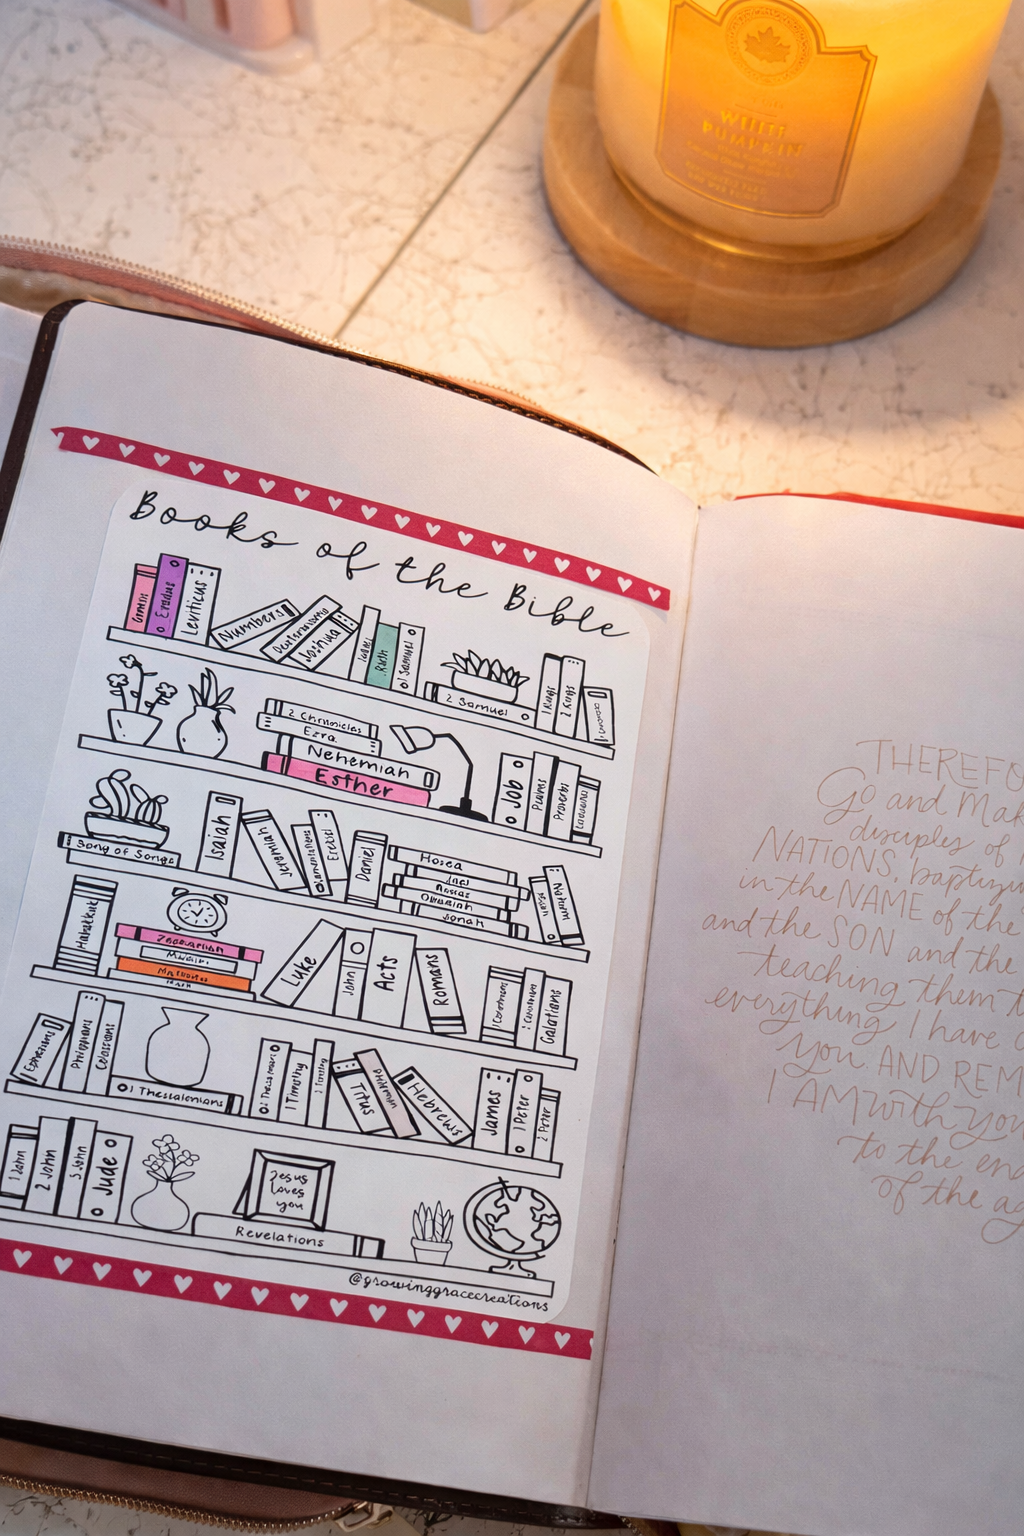 WHITE
PUMPKIN
Books of the Bible
Genesis
Exodus
Leviticus
Numbers
Deuteronomy
Joshua
Ruth
1 Samuel
2 Samuel
1 Kings
2 Kings
2 Chronicles
Ezra
Nehemiah
Esther
Job
Psalms
Proverbs
Song of Songs
Isaiah
Jeremiah
Lamentations
Ezekiel
Daniel
Hosea
Joel
Amos
Obadiah
Jonah
Micah
Nahum
Habakkuk
Zephaniah
Luke
John
Acts
Romans
1 Corinthians
2 Corinthians
Galatians
Ephesians
Philippians
Colossians
1 Thessalonians
1 Timothy
2 Timothy
Titus
Philemon
Hebrews
James
1 Peter
2 Peter
1 John
2 John
3 John
Jude
Jesus
Loves
you
Revelations
@growinggracecreations
THEREFO
Go and Mak
disciples of
NATIONS, baptizin
in the NAME of the
and the SON and the
teaching them t
everything I have
you AND REM
I AM with you
to the en
of the ag